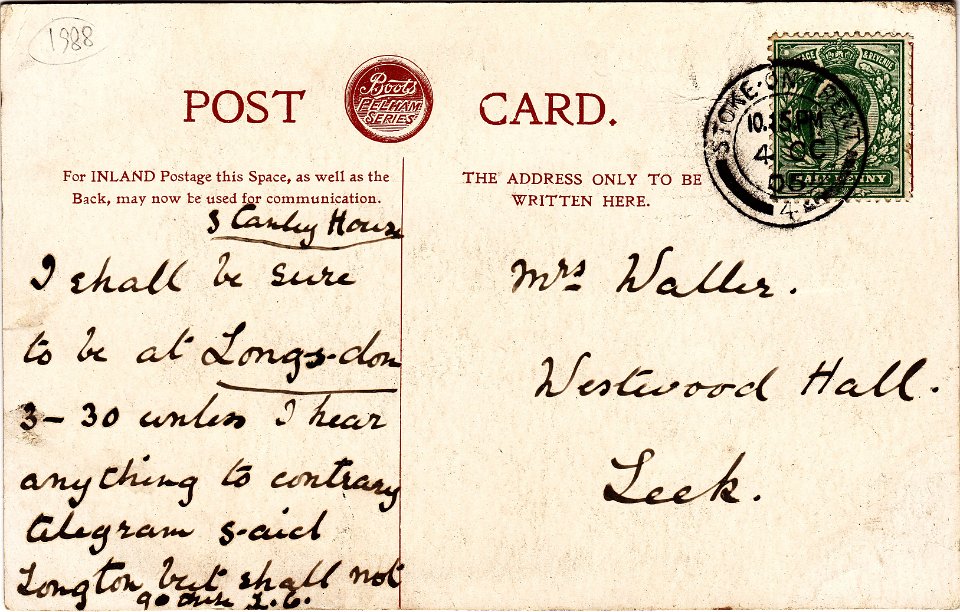 1988
POST
Boots
PELHAM
SERIES
CARD.
For INLAND Postage this Space, as well as the
Back, may now be used for communication.
THE ADDRESS ONLY TO BE
WRITTEN HERE.
STOKE-ON-TRENT
10.15PM
4 OC
06
4
POSTAGE & REVENUE
HALF PENNY
House
I shall be sure
to be at Longs-don
3-30 unless I hear
anything to contrary
telegram s-aid
Longton but shall not
go there
Mrs Waller.
Westwood Hall.
Leek.